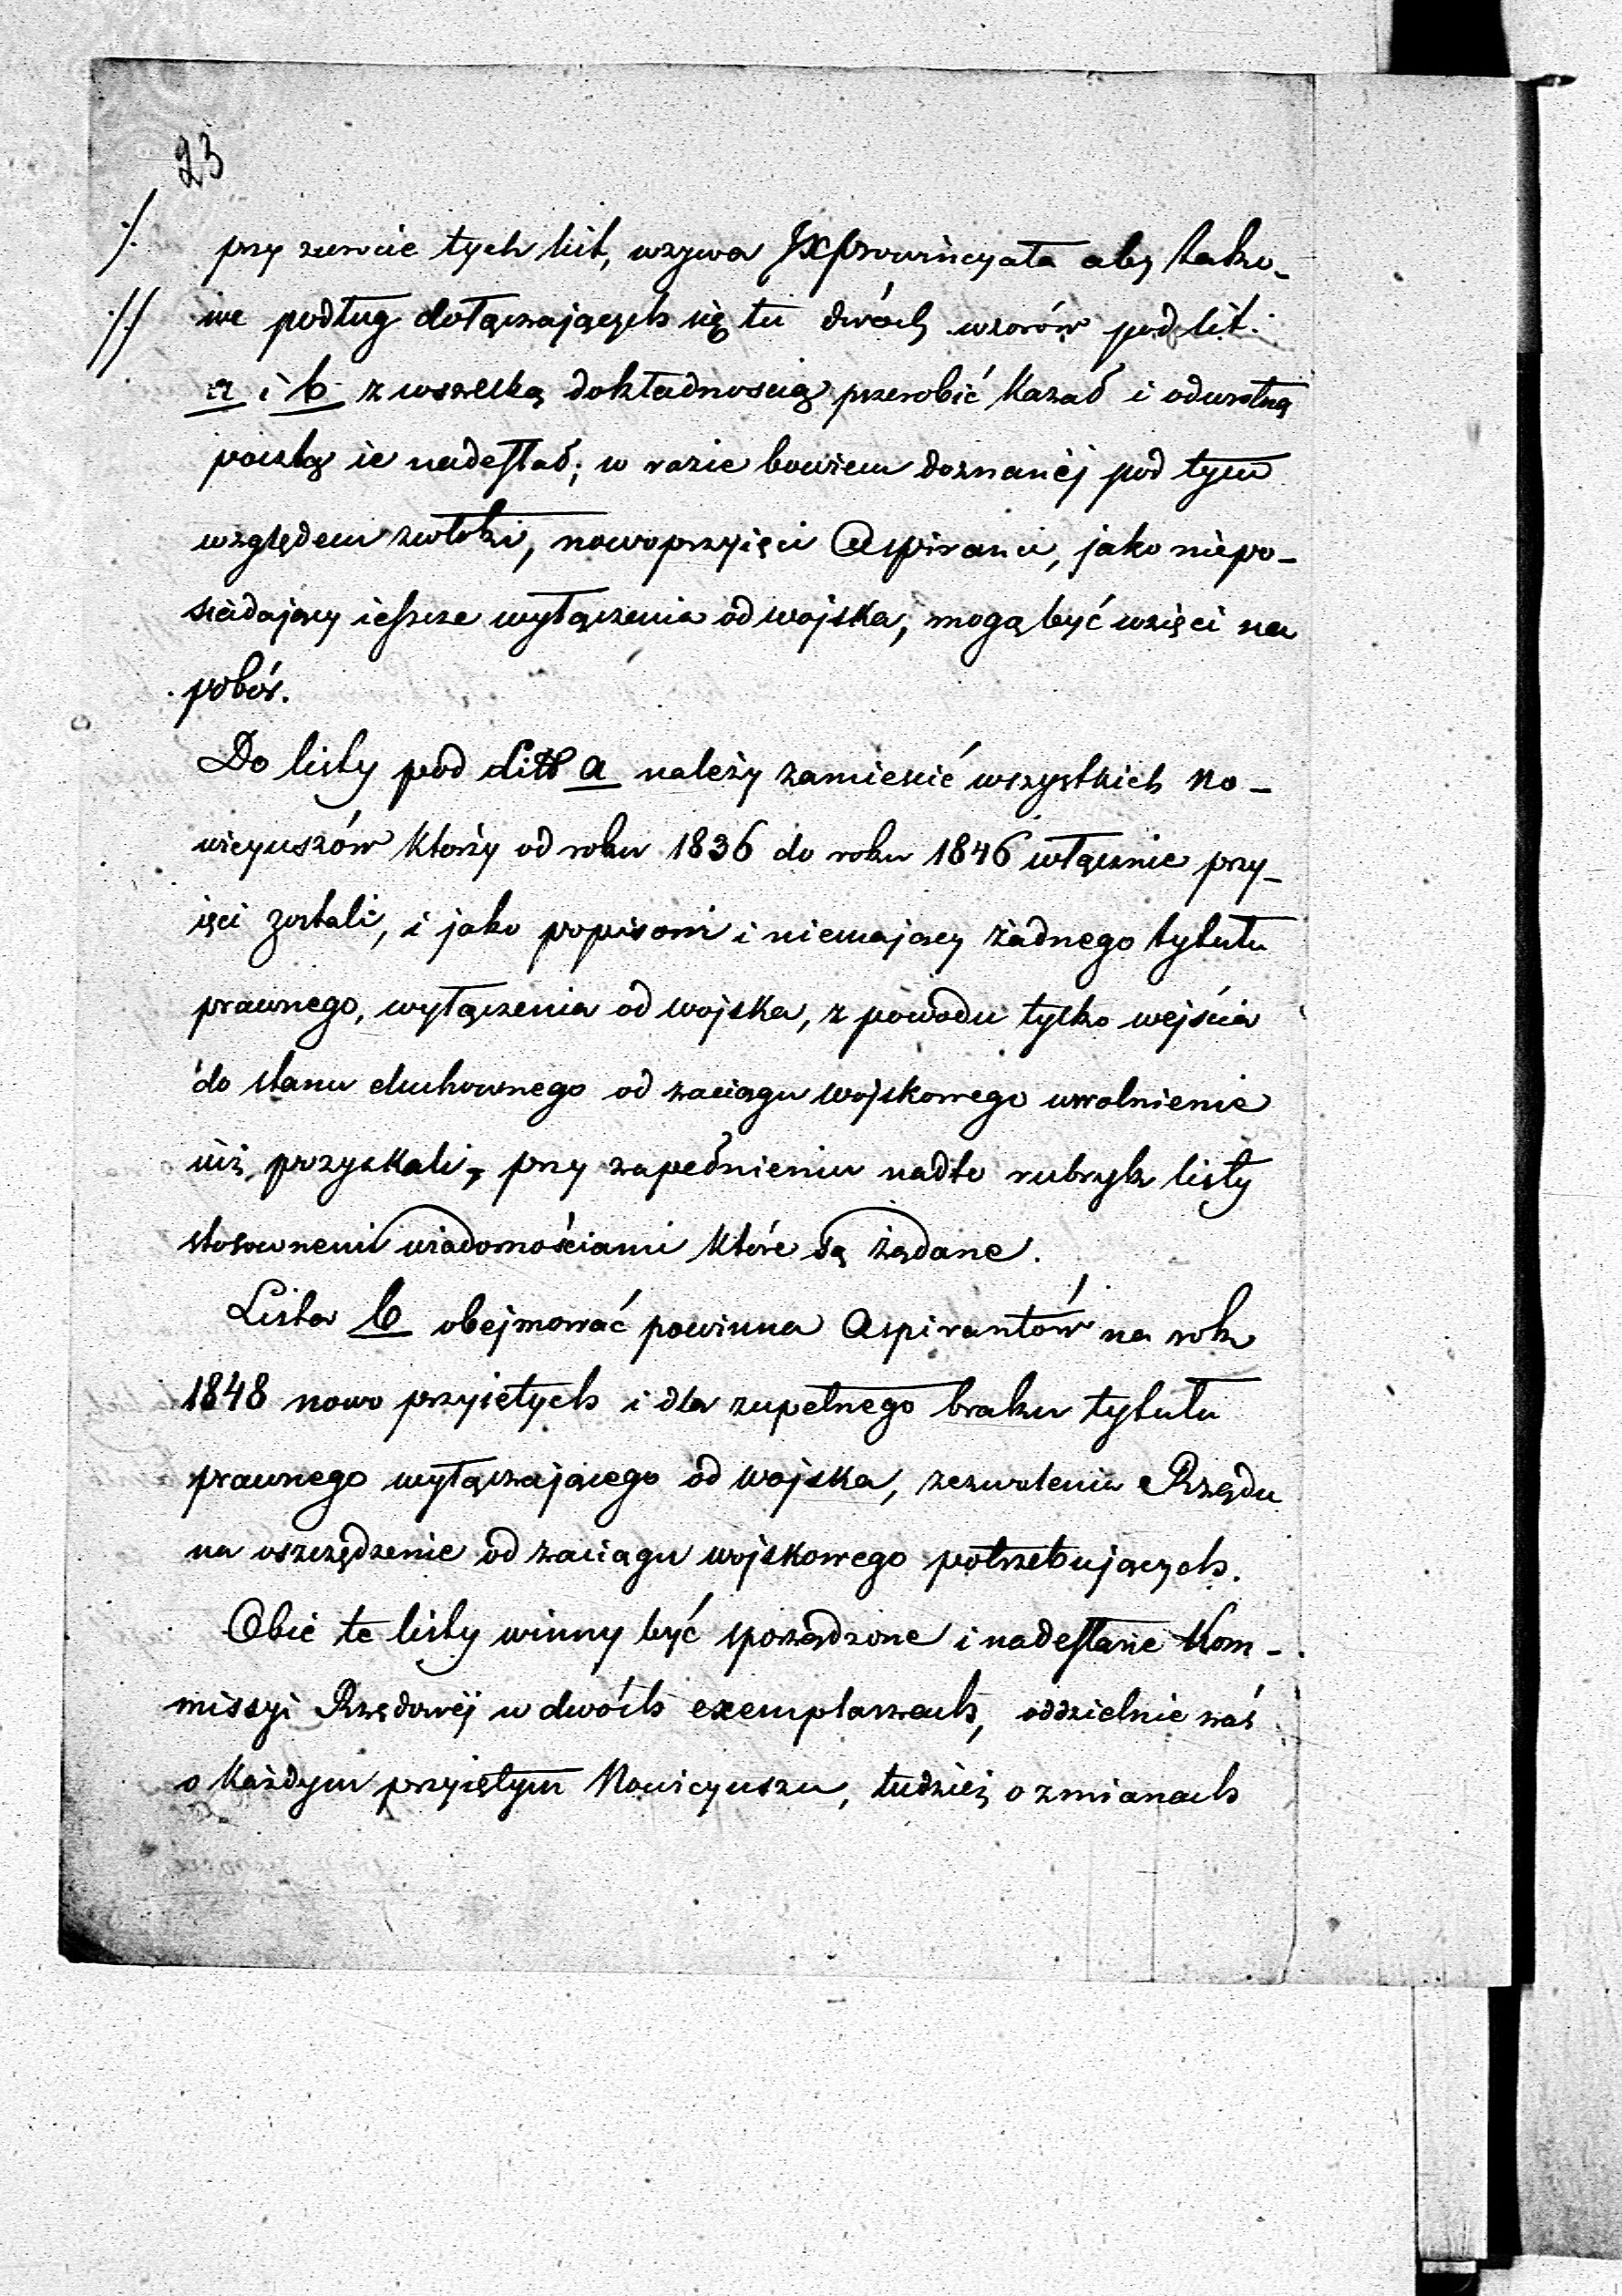 23
przy zwrocie tych list, wzywa JXprowincyała aby tako-
we podług dołączających się tu dwóch wzorów pod lit.
a i b z wszelką dokładnością przerobić kazał i odwrotną
pocztą ie nadesłał; w razie bowiem doznanéj pod tym
względem zwłoki, nowoprzyięci Aspiranci, jako niepo-
siadający ieszcze wyłączenia od wojska, mogą być wzięci na
pobór.
Do listy pod Litt a należy zamieścić wszystkich No-
wicyuszów którzy od roku 1836 do roku 1846 włącznie przy-
ięci zostali, i jako popisowi i niemający żadnego tytułu
prawnego, wyłączenia od wojska, z powodu tylko wejścia
do stanu duchownego od zaciągu wojskowego uwolnienie
iuż pozyskali, przy zapełnieniu nadto rubryk listy
stosownemi wiadomościami które są żądane.
Lista b obejmować powinna Aspirantów na rok
1848 nowo przyiętych i dla zupełnego braku tytułu
prawnego wyłączającego od wojska, zezwolenia Rządu
na oszczędzenie od zaciągu wojskowego potrzebujących.
Obie te listy winny być sporządzone i nadesłane Kom-
missyi Rządowéj w dwóch exemplarzach, oddzielnie zaś
o każdym przyiętym Nowicyuszu, tudzież o zmianach